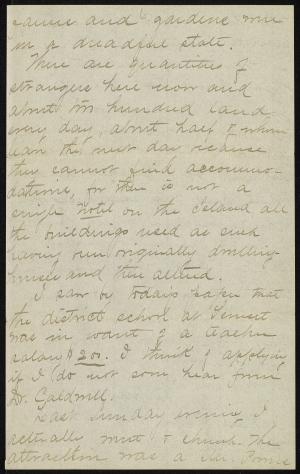 and gardens were
in a dreadful state.
There are quantities of
strangers here now and
about two hundred land
every day, about half of whom
leave the next day because
they cannot find accommo-
dations, for there is not a
single hotel on the island all
the buildings used as such
having been originally dwelling
houses and then altered.
I saw by todays paper that
the district school at
was in want of a teacher
salary $200. I think of applying
if I do not soon hear from
Dr. Caldwell.
Last Sunday evening I
actually went to church. The
attraction was a Mr.